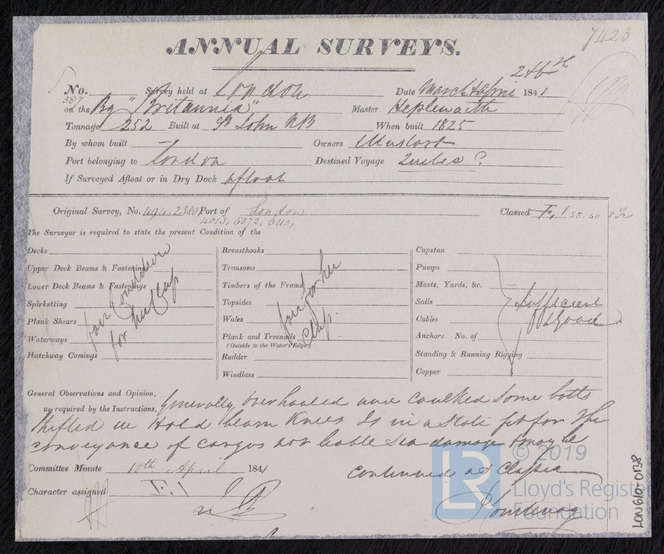 7423
ANNUAL SURVEYS.
24th
No. 387 Survey held at London Date March & April 1841
on the Bg "Britannia" Master Hepleworth
Tonnage 252 Built at St John NB When built 1825
By whom built Owners
Port belonging to London Destined Voyage Quebec?
If Surveyed Afloat or in Dry Dock afloat
Original Survey, No. 494. 2380, Port of London Classed F, 1
4213, 5072, 5110,
The Surveyor is required to state the present Condition of the
Decks Breasthooks Capstan
Upper Deck Beams & Fastenings Transoms Pumps
Lower Deck Beams & Fastenings Timbers of the Frame Masts, Yards, &c.
Spirketting Topsides Sails
Plank Shears Wales Cables
Waterways Plank and Treenails Anchors No. of
(Outside to the Water's Edge)
Hatchway Comings Rudder Standing & Running Rigging
Windlass Copper
fair Condition
for her Class
fair for her
Class.
Sufficient
& Good
General Observations and Opinion, Generally overhauled and caulked some bolts
as required by the Instructions,
shifted in Hold beam Knees Is in a State fit for the
conveyance of cargos not liable Sea damage & may be
Committee Minute 10th April 1841 continued as Classed
Character assigned F. 1 Courtenay
© 2019
LR
Lloyd's Register
Foundation
LON610-0138